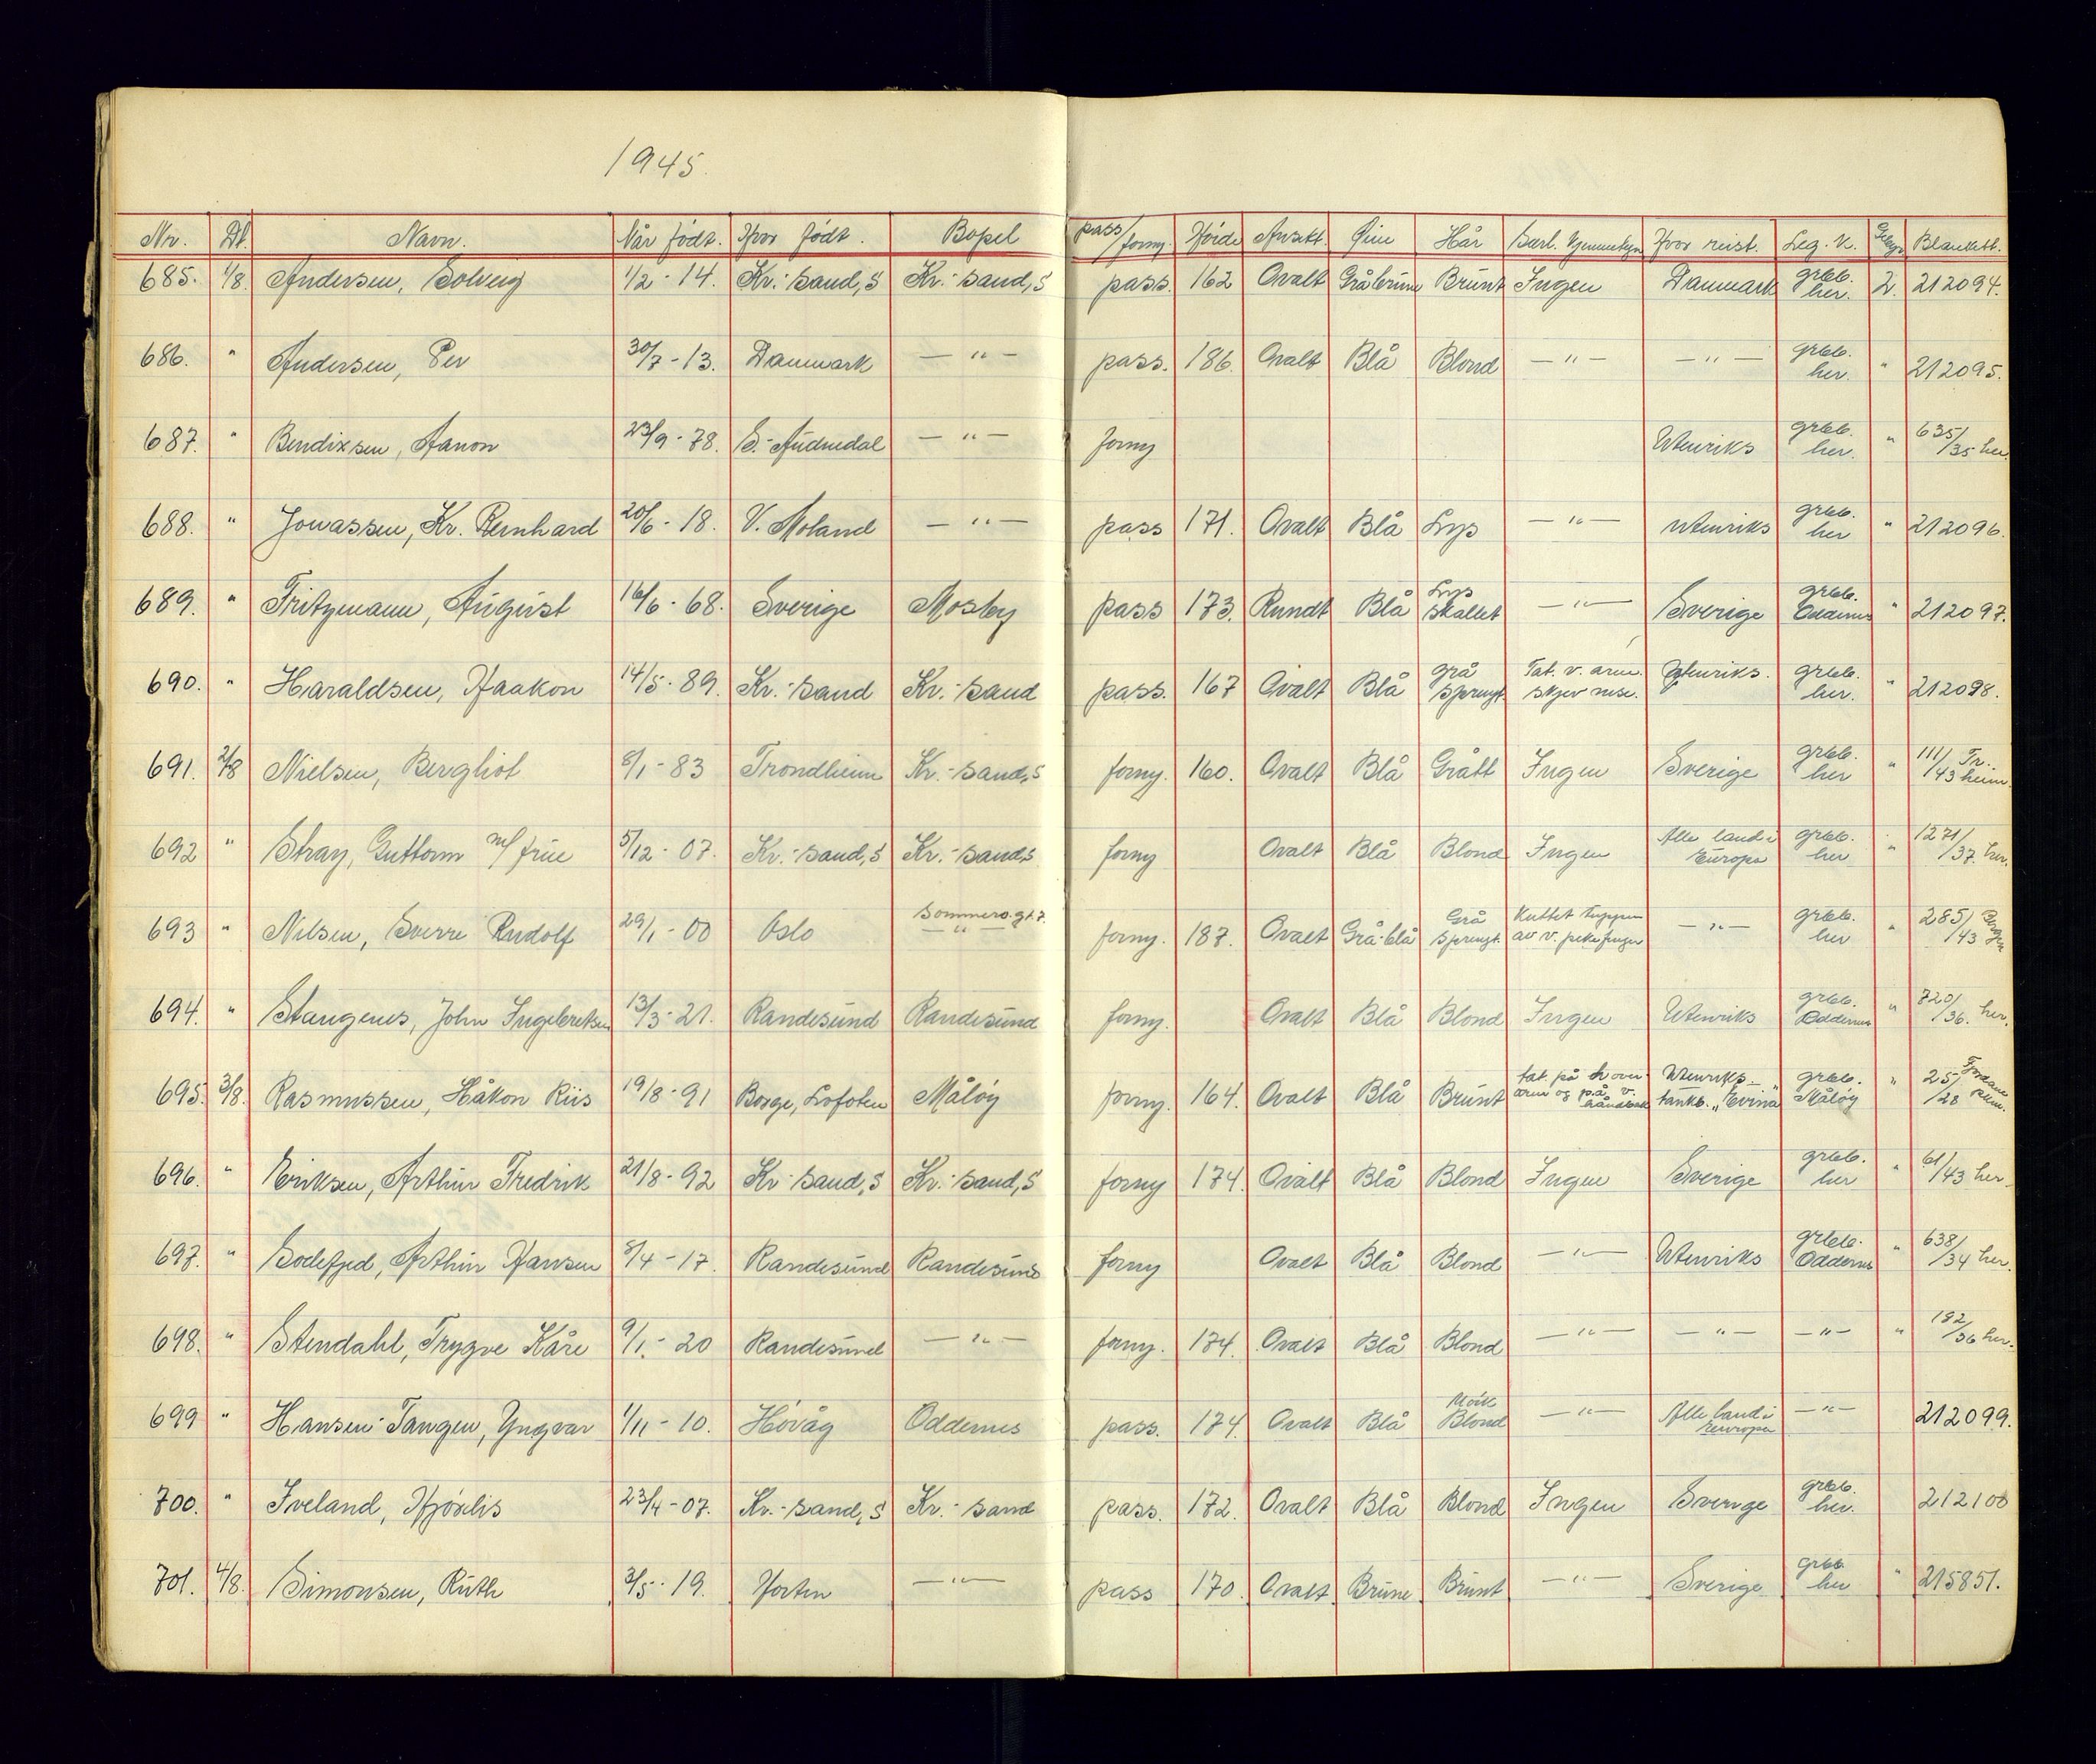 1945.
Nr. Dt. Navn. Når født. Hvor født. Bopel pass/forny. Høide Ansikt. Øine Hår Særl. kjennetegn Hvor reist. Leg. k. Gebyr Blankett.
685. 1/8. Andersen, Solveig 1/2 - 14. Kr.-sand, S Kr.-sand, S pass. 162 Ovalt Gråbrune Brunt Ingen Danmark grbb. her. 2. 212094.
686. " Andersen, Per 30/7 - 13. Danmark — " — pass. 186. Ovalt Blå Blond — " — — " — grbb. her. " 212095.
687. " Bendixsen, Aanon 23/9 - 78. S.-Audnedal — " — forny Utenriks grbb. her. " 635/35 her.
688. " Jonassen, Kr. Bernhard 20/6 - 18. V. Moland — " — pass 171. Ovalt Blå Lys — " — utenriks grbb. her " 212096.
689. " Fritzmann, August 16/6 - 68. Sverige Mosby pass 173. Rundt Blå Lys skallet — " — Sverige grbb. Oddernes " 212097.
690. " Haraldsen, Haakon 14/5 - 89. Kr.-sand Kr.-sand pass. 167 Ovalt Blå grå sprengt. Tat. v. arm. skjev nese. Utenriks. grbb. her. " 212098.
691. 2/8 Nielsen, Bergliot 8/1 - 83 Trondheim Kr.-sand, S forny. 160. Ovalt Blå Grått Ingen Sverige grbb. her " 111/43 Tr.heim.
692 " Stray, Guttorm m/ frue 5/12 - 07. Kr.-sand, S Kr.-sand, S forny Ovalt Blå Blond Ingen Alle land i Europa grbb. her " 1271/37. her.
693 " Nilsen, Sverre Rudolf 29/1 - 00 Oslo Sommero. gt. 7. — " — forny. 187. Ovalt Grå-blå Grå sprengt. Kuttet tuppen av v. pekefinger — " — grbb. her " 285/43 Bergen
694. " Stangenes, John Ingebretsen 13/3 - 21. Randesund Randesund forny. Ovalt Blå Blond Ingen Utenriks grbb. Oddernes " 720/36. her.
695. 3/8. Rasmussen, Håkon Riis 19/8 - 91 Borge, Lofoten Måløy forny. 164. Ovalt Blå Brunt tat. på h over- arm og på v. håndbak Utenriks — tankb. „Evina" grbb. Måløy " 25/28 Fjordane pkm.
696. " Eriksen, Arthur Fredrik 21/8 - 92 Kr-sand, S Kr.-sand, S forny 174. Ovalt Blå Blond Ingen Sverige grbb. her " 61/43 her.
697. " Sodefjed, Arthur Hansen 8/4 - 17. Randesund Randesund forny Ovalt Blå Blond — " — Utenriks grbb. Oddernes " 638/34 her.
698. " Stendahl, Trygve Kåre 9/1. - 20 Randesund — " — forny. 174. Ovalt Blå Blond — " — — " — — " — " 182/36 her.
699 " Hansen-Tangen, Yngvar 1/11 - 10. Høvåg Oddernes pass. 174. Ovalt Blå Mørk Blond — " — Alle land i Europa — " — 212099.
700. " Iveland, Hjørdis 23/4 - 07. Kr.-sand, S Kr.-sand pass. 172. Ovalt Blå Blond Ingen Sverige grbb. her. 212100
701. 4/8. Simonsen, Ruth 3/5 - 19. Horten — " — pass 170. Ovalt Brune. Brunt — " — Sverige grbb. her " 215851.